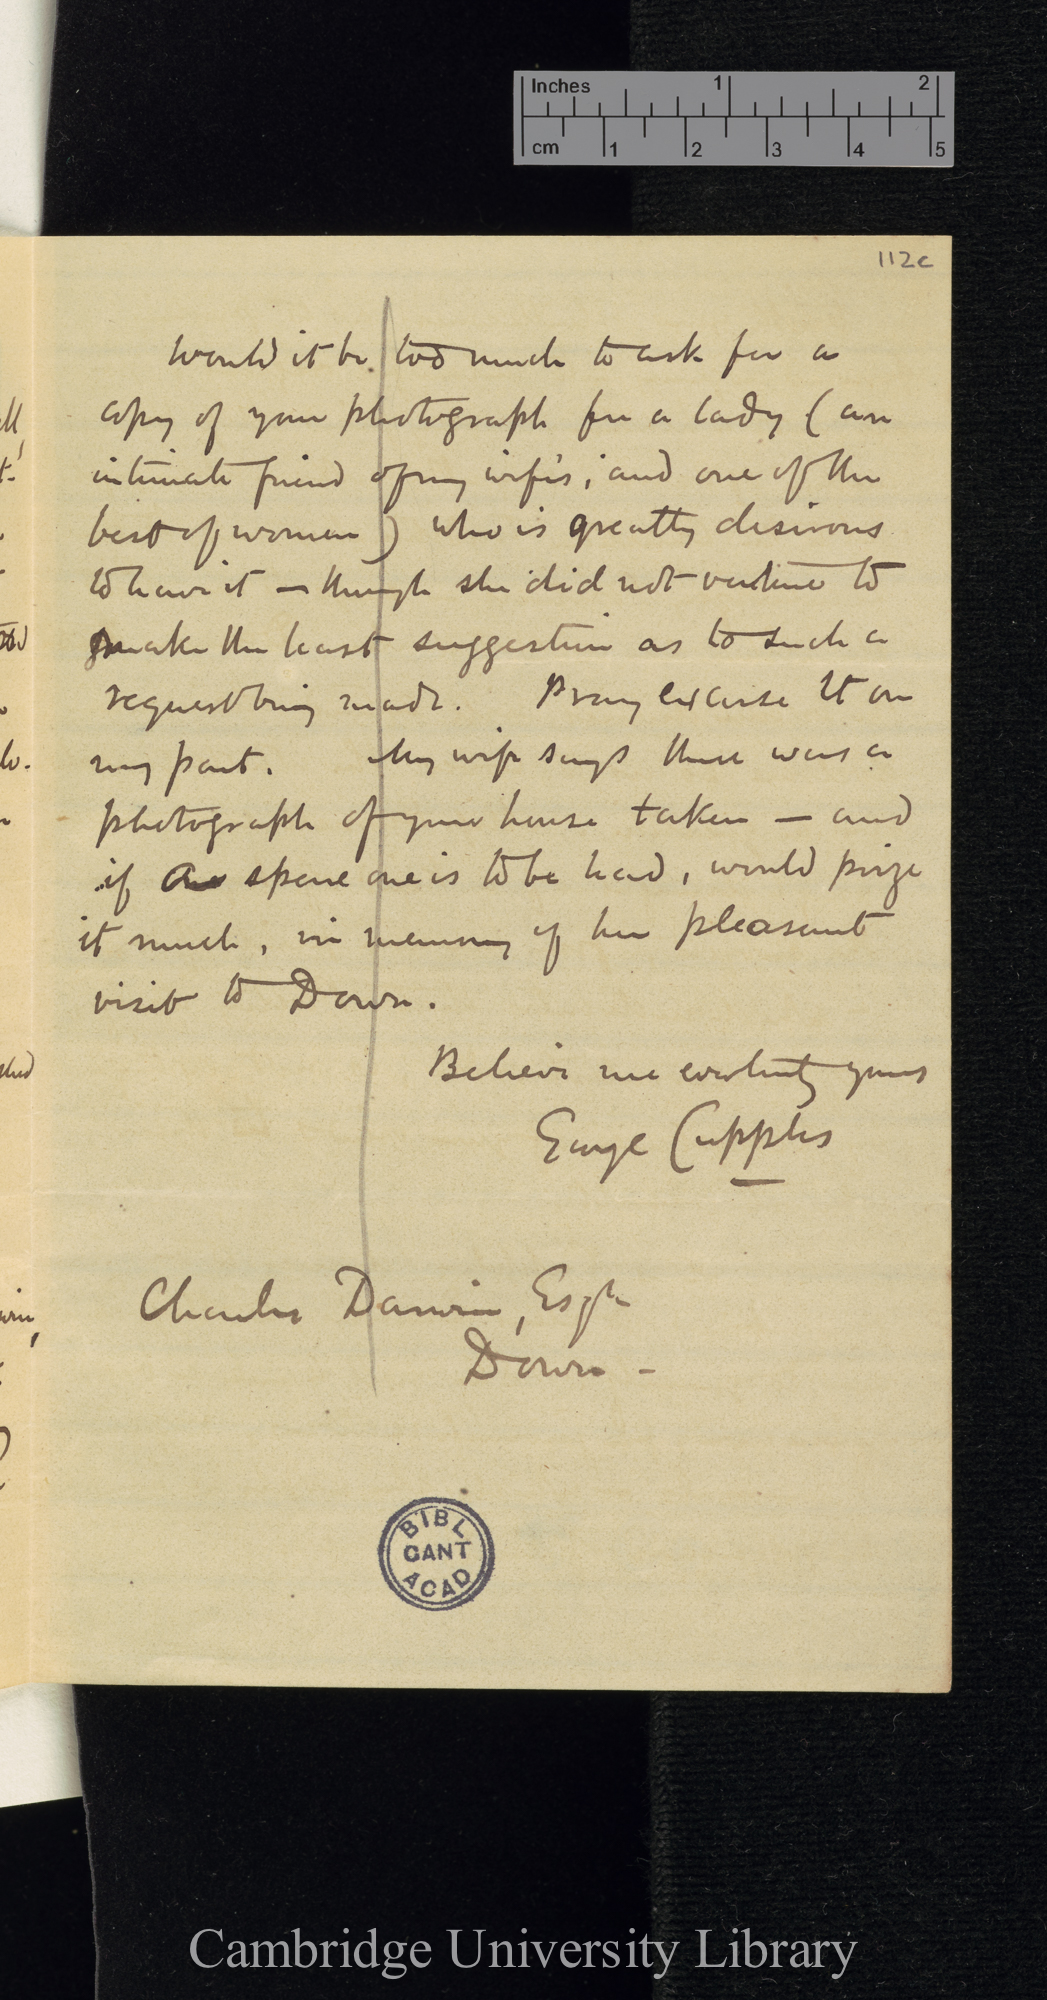 Inches 1 2
cm 1 2 3 4 5
112c
Would it be too much to ask for a
copy of your photograph for a lady (an
intimate friend of my wife's; and one of the
best of women) who is greatly desirous
to have it — though she did not venture to
make the least suggestion as to such a
request being made. Pray excuse it on
my part. My wife says there was a
photograph of your house taken — and
if a spare one is to be had, would prize
it much, in memory of her pleasant
visit to Down.
Believe me evermore yours
George Cupples
Charles Darwin, Esqr
Down —
BIBL
CANT
ACAD
Cambridge University Library